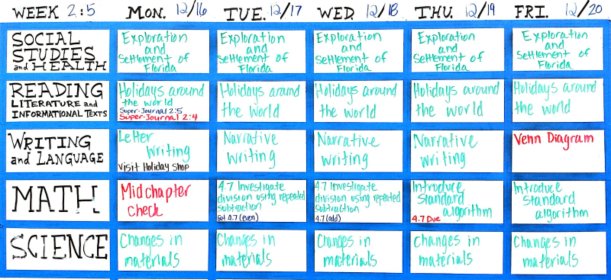 WEEK 2:5 MON. 12/16 TUE. 12/17 WED 12/18 THU. 12/19 FRI. 12/20
SOCIAL
STUDIES
and HEALTH
Exploration
and
Settlement of
Florida
Exploration
and
Settlement of
Florida
Exploration
and
Settlement of
Florida
Exploration
and
Settlement of
Florida
Exploration
and
Settlement of
Florida
READING
LITERATURE and
INFORMATIONAL TEXTS
Holidays around
the world
Super-Journal 2:5
Super-Journal 2:4
Holidays around
the world
Holidays around
the world
Holidays around
the world
Holidays around
the world
WRITING
and LANGUAGE
Letter
Writing
Visit Holiday Shop
Narrative
Writing
Narrative
Writing
Narrative
Writing
Venn Diagram
MATH
Midchapter
check
4.7 Investigate
division using repeated
subtraction
4.7 (even)
4.7 Investigate
division using repeated
subtraction
4.7 (odd)
Introduce
Standard
algorithm
4.7 Due
Introduce
Standard
algorithm
SCIENCE
Changes in
materials
Changes in
materials
Changes in
materials
Changes in
materials
Changes in
materials